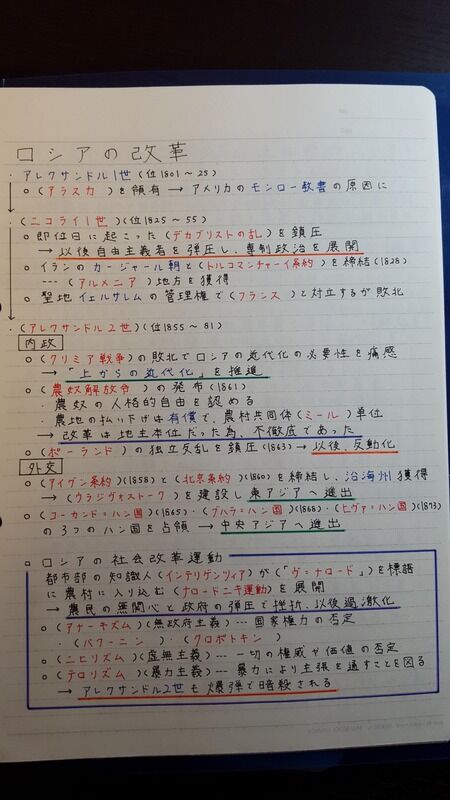 ロシアの改革
・アレクサンドル1世(位1801〜25)
○(アラスカ)を領有→アメリカのモンロー教書の原因に
・(ニコライ1世)(位1825〜55)
○即位日に起こった(デカブリストの乱)を鎮圧
→以後自由主義者を弾圧し、専制政治を展開
○イランのカージャール朝と(トルコマンチャーイ条約)を締結(1828)
---(アルメニア)地方を獲得
○聖地イェルサレムの管理権で(フランス)と対立するが敗北
・(アレクサンドル2世)(位1855〜81)
内政
○(クリミア戦争)の敗北でロシアの近代化の必要性を痛感
→「上からの近代化」を推進
○(農奴解放令)の発布(1861)
・農奴の人格的自由を認める
・農地の払い下げは有償で、農村共同体(ミール)単位
→改革は地主本位だった為、不徹底であった
○(ポーランド)の独立反乱を鎮圧(1863)→以後、反動化
外交
○(アイグン条約)(1858)と(北京条約)(1860)を締結し、沿海州獲得
→(ウラジヴォストーク)を建設し東アジアへ進出
○(コーカンド=ハン国)(1865)・(ブハラ=ハン国)(1868)・(ヒヴァ=ハン国)(1873)
の3つのハン国を占領→中央アジアへ進出
□ロシアの社会改革運動
都市部の知識人(インテリゲンツィア)が(「ヴ=ナロード」)を標語
に農村に入り込む(ナロードニキ運動)を展開
→農民の無関心と政府の弾圧で挫折、以後過激化
○(アナーキズム)(無政府主義)---国家権力の否定
・(バクーニン)・(クロポトキン)
○(ニヒリズム)(虚無主義)---一切の権威や価値の否定
○(テロリズム)(暴力主義)---暴力により主張を通すことを図る
→アレクサンドル2世も爆弾で暗殺される